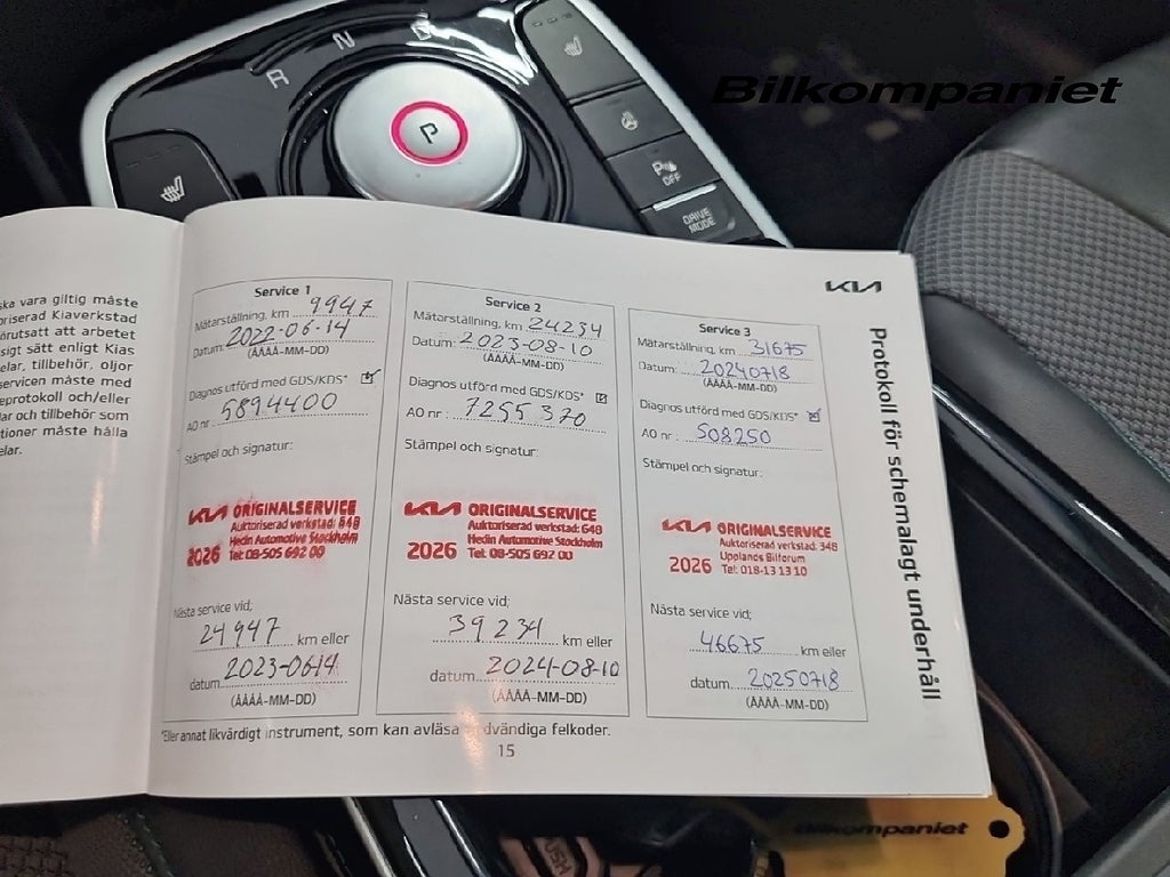 R N D
P
P OFF
DRIVE MODE
Bilkompaniet
ska vara giltig måste
oriserad Kiaverkstad
örutsatt att arbetet
sigt sätt enligt Kias
elar, tillbehör, oljor
servicen måste med
eprotokoll och/eller
lar och tillbehör som
tioner måste hålla
elar.
Service 1
Mätarställning, km 9947
Datum: 2022-06-14
(ÅÅÅÅ-MM-DD)
Diagnos utförd med GDS/KDS*
AO nr 5894400
Stämpel och signatur:
KIA ORIGINALSERVICE
Auktoriserad verkstad: 648
Hedin Automotive Stockholm
2026 Tel: 08-505 692 00
Nästa service vid;
24947 km eller
datum 2023-06-14
(ÅÅÅÅ-MM-DD)
Service 2
Mätarställning, km 24234
Datum: 2023-08-10
(ÅÅÅÅ-MM-DD)
Diagnos utförd med GDS/KDS*
AO nr : 7255370
Stämpel och signatur:
KIA ORIGINALSERVICE
Auktoriserad verkstad: 648
Hedin Automotive Stockholm
2026 Tel: 08-505 692 00
Nästa service vid;
39234 km eller
datum 2024-08-10
(ÅÅÅÅ-MM-DD)
Service 3
Mätarställning, km 31675
Datum: 20240718
(ÅÅÅÅ-MM-DD)
Diagnos utförd med GDS/KDS*
AO nr : 508250
Stämpel och signatur:
KIA ORIGINALSERVICE
Auktoriserad verkstad: 348
Upplands Bilforum
2026 Tel: 018-13 13 10
Nästa service vid;
46675 km eller
datum 20250718
(ÅÅÅÅ-MM-DD)
KIA
Protokoll för schemalagt underhåll
*Eller annat likvärdigt instrument, som kan avläsa dvändiga felkoder.
15
Bilkompaniet